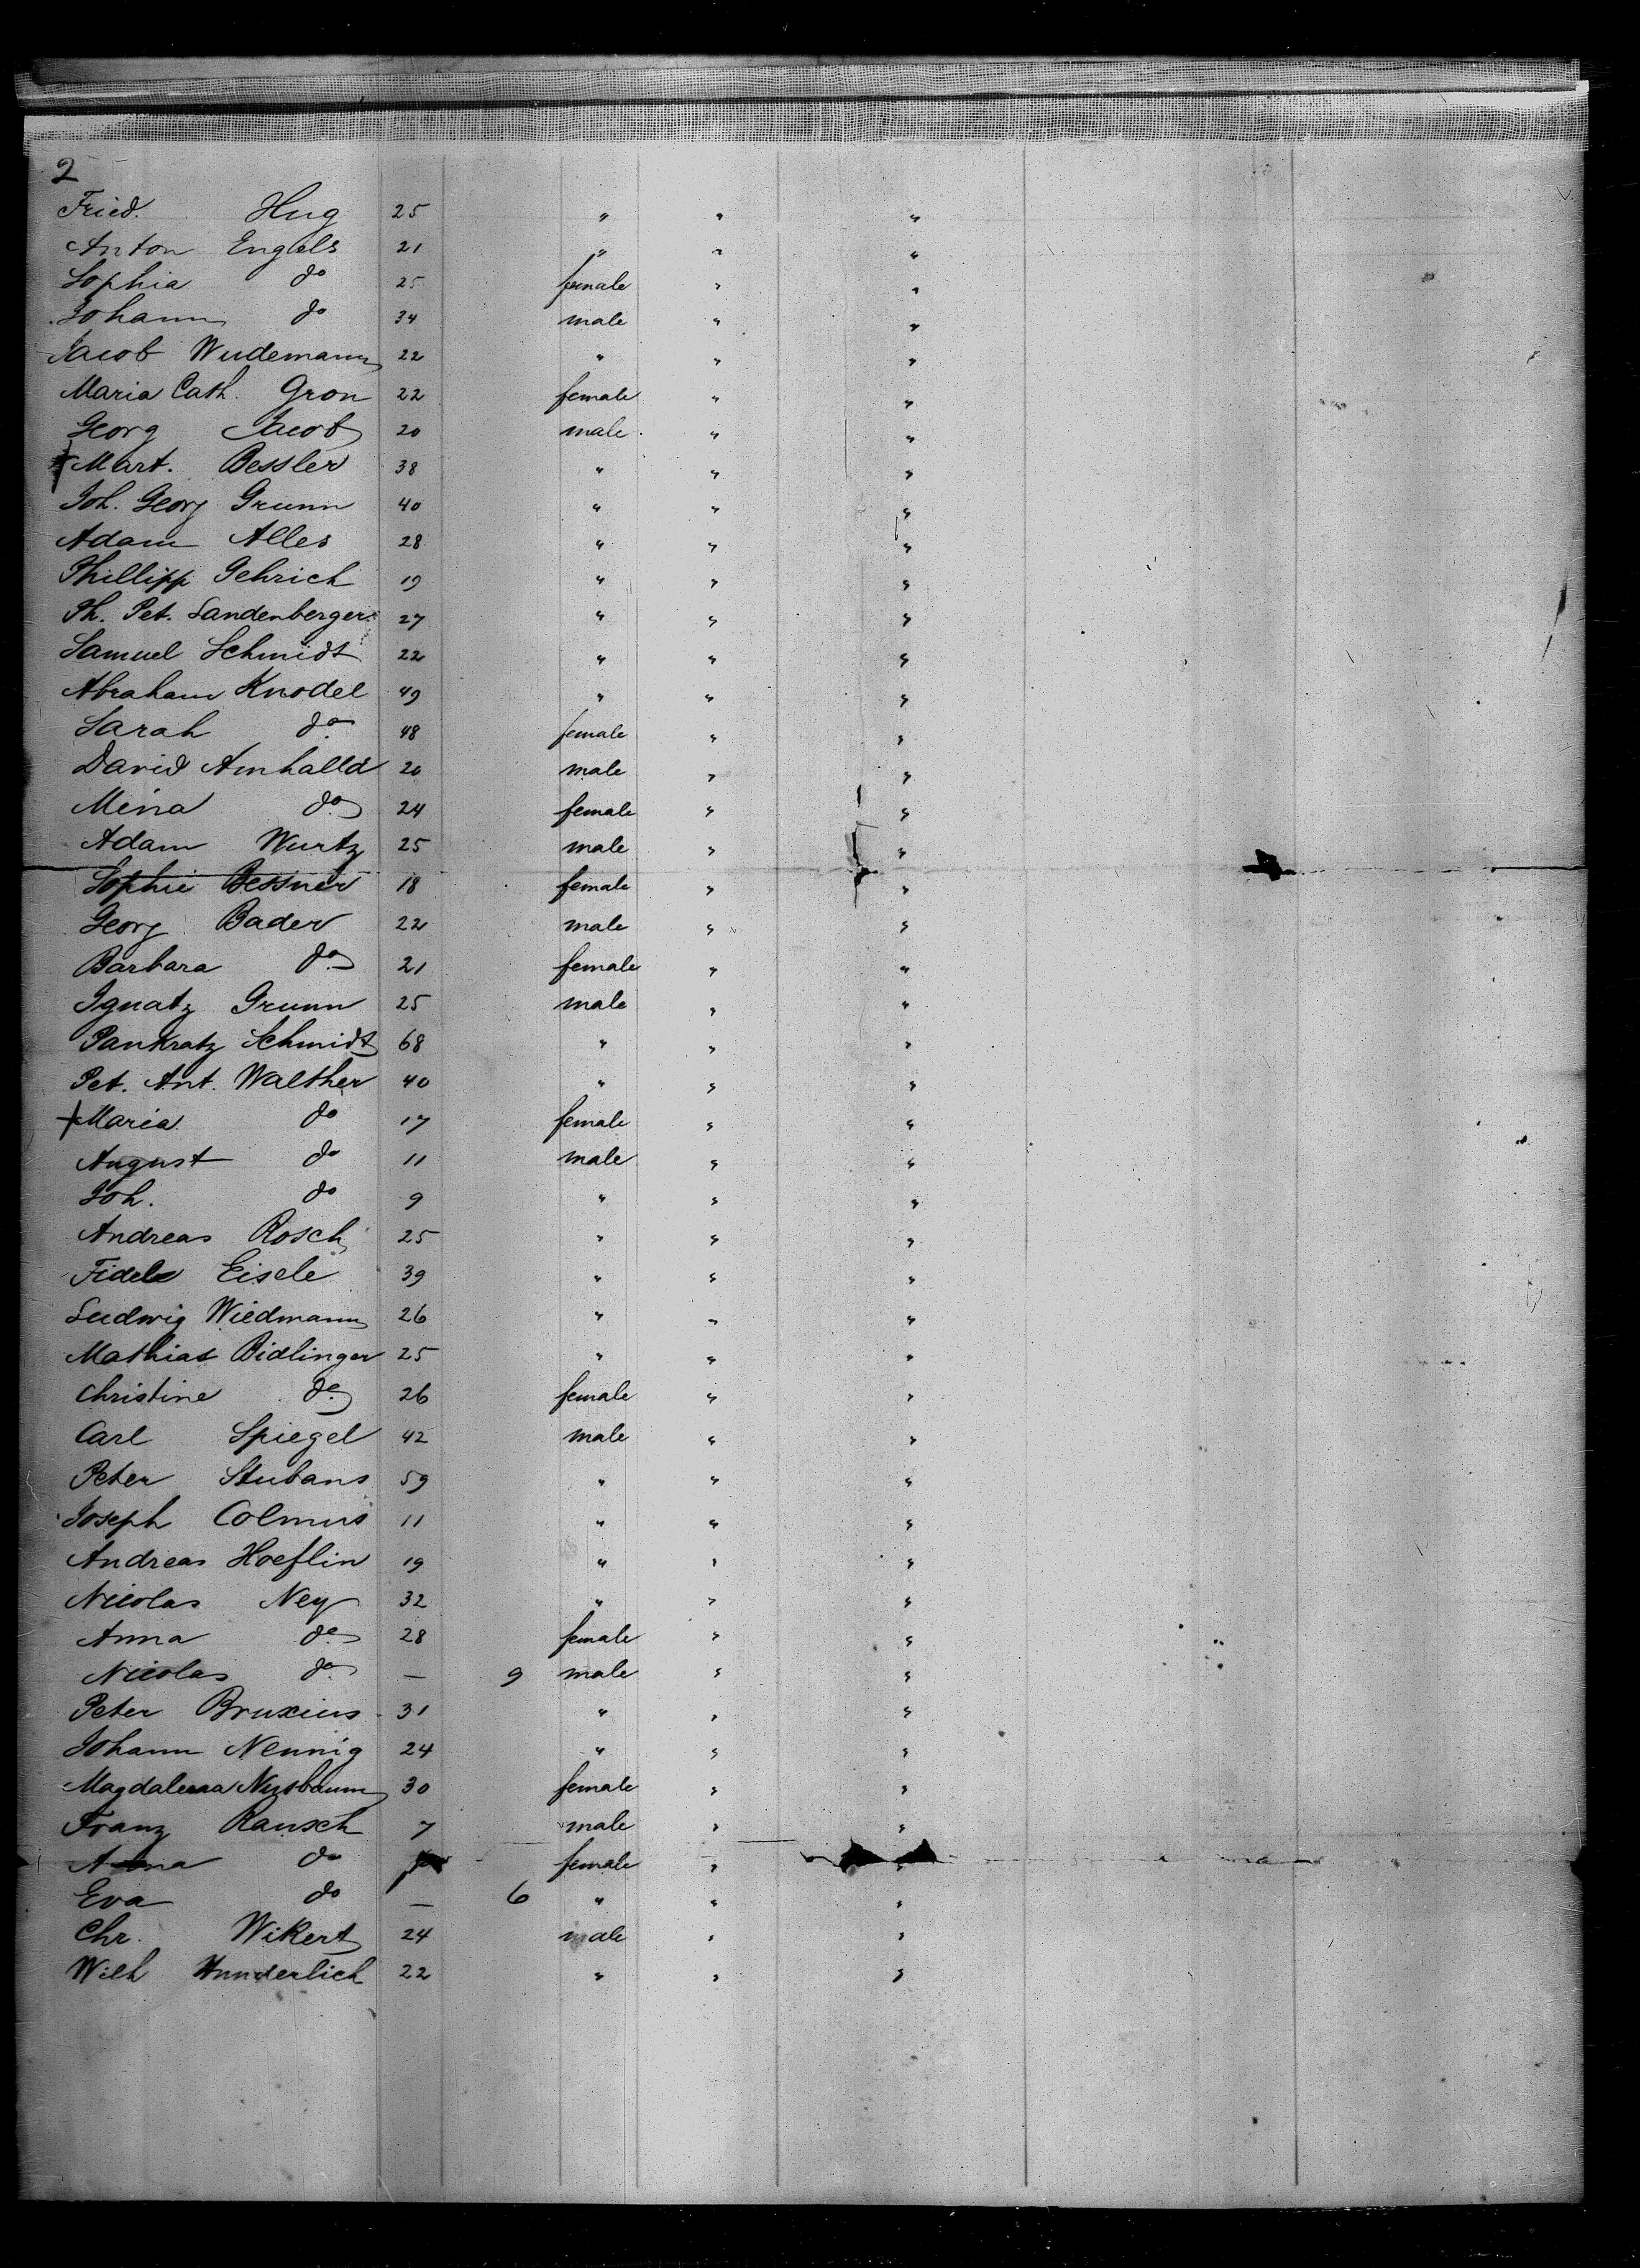 2
Fried. Hug 25 " " "
Anton Engels 21 " " "
Sophia do 25 female " "
Johann do 34 male " "
Jacob Wudemann 22 " " "
Maria Cath. Gron 22 female " "
Georg Jacob 20 male " "
Mart. Bessler 38 " " "
Joh. Georg Grunn 40 " " "
Adam Alles 28 " " "
Phillipp Gehrich 19 " " "
Ph. Pet. Landenberger 27 " " "
Samuel Schmidt 22 " " "
Abraham Knodel 49 " " "
Sarah do 48 female " "
David Amhalld 20 male " "
Mina do 24 female " "
Adam Wurtz 25 male " "
Sophie Bessner 18 female " "
Georg Bader 22 male " "
Barbara do 21 female " "
Ignatz Grunn 25 male " "
Pankratz Schmidt 68 " " "
Pet. Ant. Walther 40 " " "
+ Maria do 17 female " "
August do 11 male " "
Joh. do 9 " " "
Andreas Rosch 25 " " "
Fidel Eisele 39 " " "
Ludwig Wiedmann 26 " " "
Mathias Bidlinger 25 " " "
Christine do 26 female " "
Carl Spiegel 42 male " "
Peter Stubans 59 " " "
Joseph Colmus 11 " " "
Andreas Hoeflin 19 " " "
Nicolas Ney 32 " " "
Anna do 28 female " "
Nicolas do — 9 male " "
Peter Bruxius 31 " " "
Johann Nennig 24 " " "
Magdalena Nusbaum 30 female " "
Franz Rausch 7 male " "
Anna do female " "
Eva do — 6 " " "
Chr. Wikert 24 male " "
Wilh Wunderlich 22 " " "